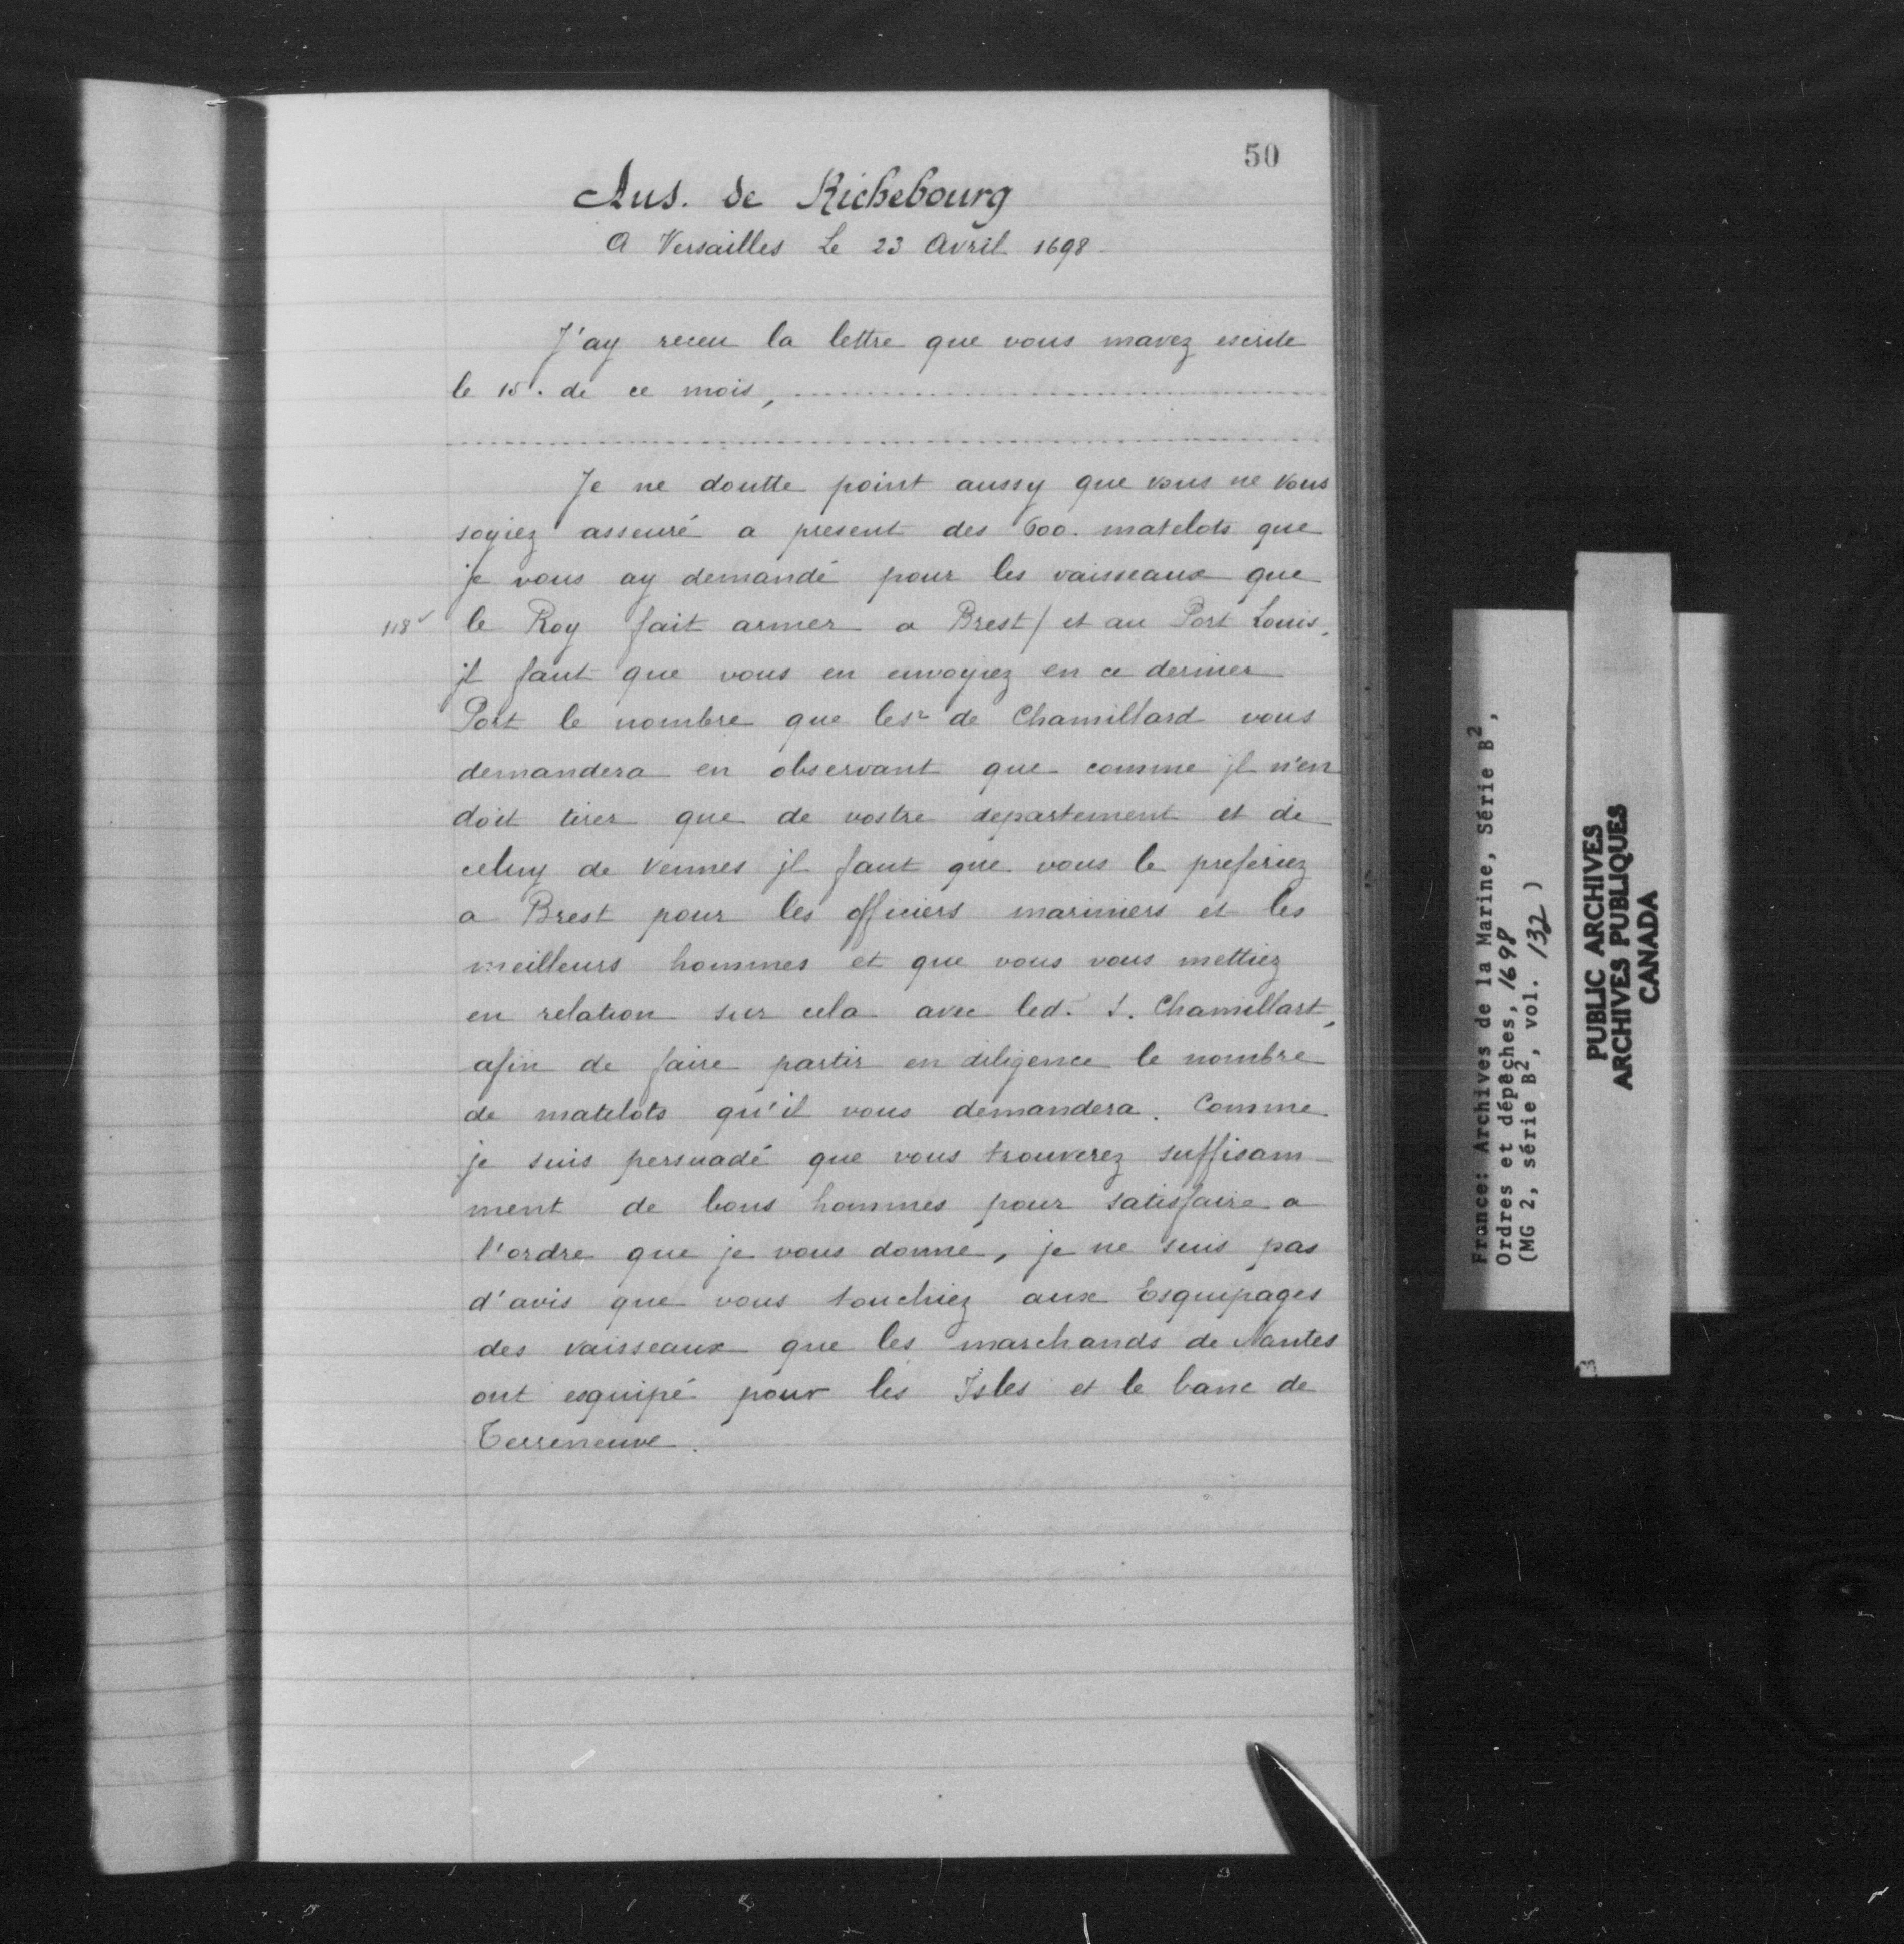 50
Aus. de Richebourg
A Versailles Le 23 Avril 1698
J'ay receu la lettre que vous mavez escrite
le 15. de ce mois,
Je ne doutte point aussy que vous ne vous
soyiez asseuré a present des 600. matelots que
je vous ay demandé pour les vaisseaux que
118v le Roy fait armer a Brest / et au Port Louis,
jl faut que vous en envoyiez en ce dernier
Port le nombre que les.r de Chamillard vous
demandera en observant que comme jl n'en
doit tirer que de vostre departement et de
celuy de Vennes jl faut que vous le preferiez
a Brest pour les officiers mariniers et les
meilleurs hommes et que vous vous mettiez
en relation sur cela avec led. S. Chamillart,
afin de faire partir en diligence le nombre
de matelots qu'il vous demandera. Comme
je suis persuadé que vous trouverez suffisam-
ment de bons hommes pour satisfaire a
l'ordre que je vous donne, je ne suis pas
d'avis que vous touchiez aux Esquipages
des vaisseaux que les marchands de Nantes
ont esquipé pour les Isles et le banc de
Terreneuve.
France: Archives de la Marine, Série B2,
Ordres et dépêches, 1698
(MG 2, série B2, vol. 132)
PUBLIC ARCHIVES
ARCHIVES PUBLIQUES
CANADA
3